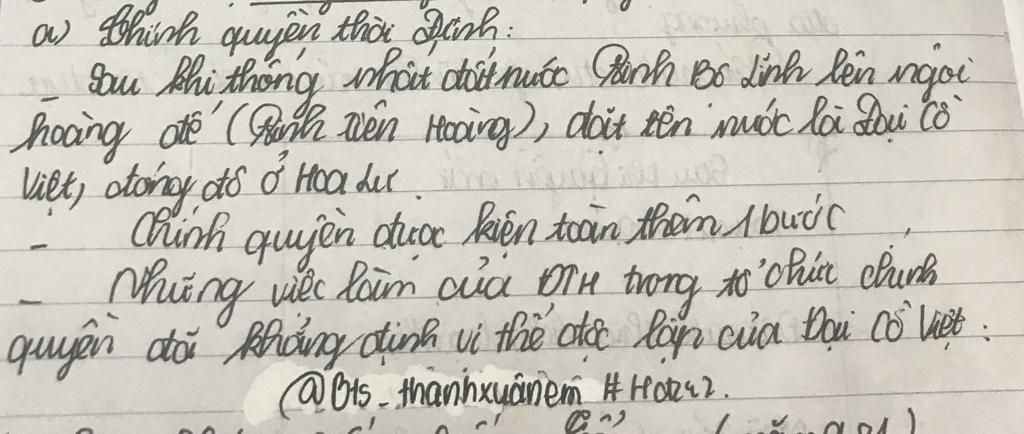 a) Chính quyền thời Đinh:
- Sau khi thống nhất đất nước Đinh Bộ Lĩnh lên ngôi
hoàng đế (Đinh Tiên Hoàng), đặt tên nước là Đại Cồ
Việt, đóng đô ở Hoa Lư
- Chính quyền được kiện toàn thêm 1 bước
- Những việc làm của ĐTH trong tổ chức chính
quyền đã khẳng định vị thế độc lập của Đại Cồ Việt.
(@Bts_thanhxuanem